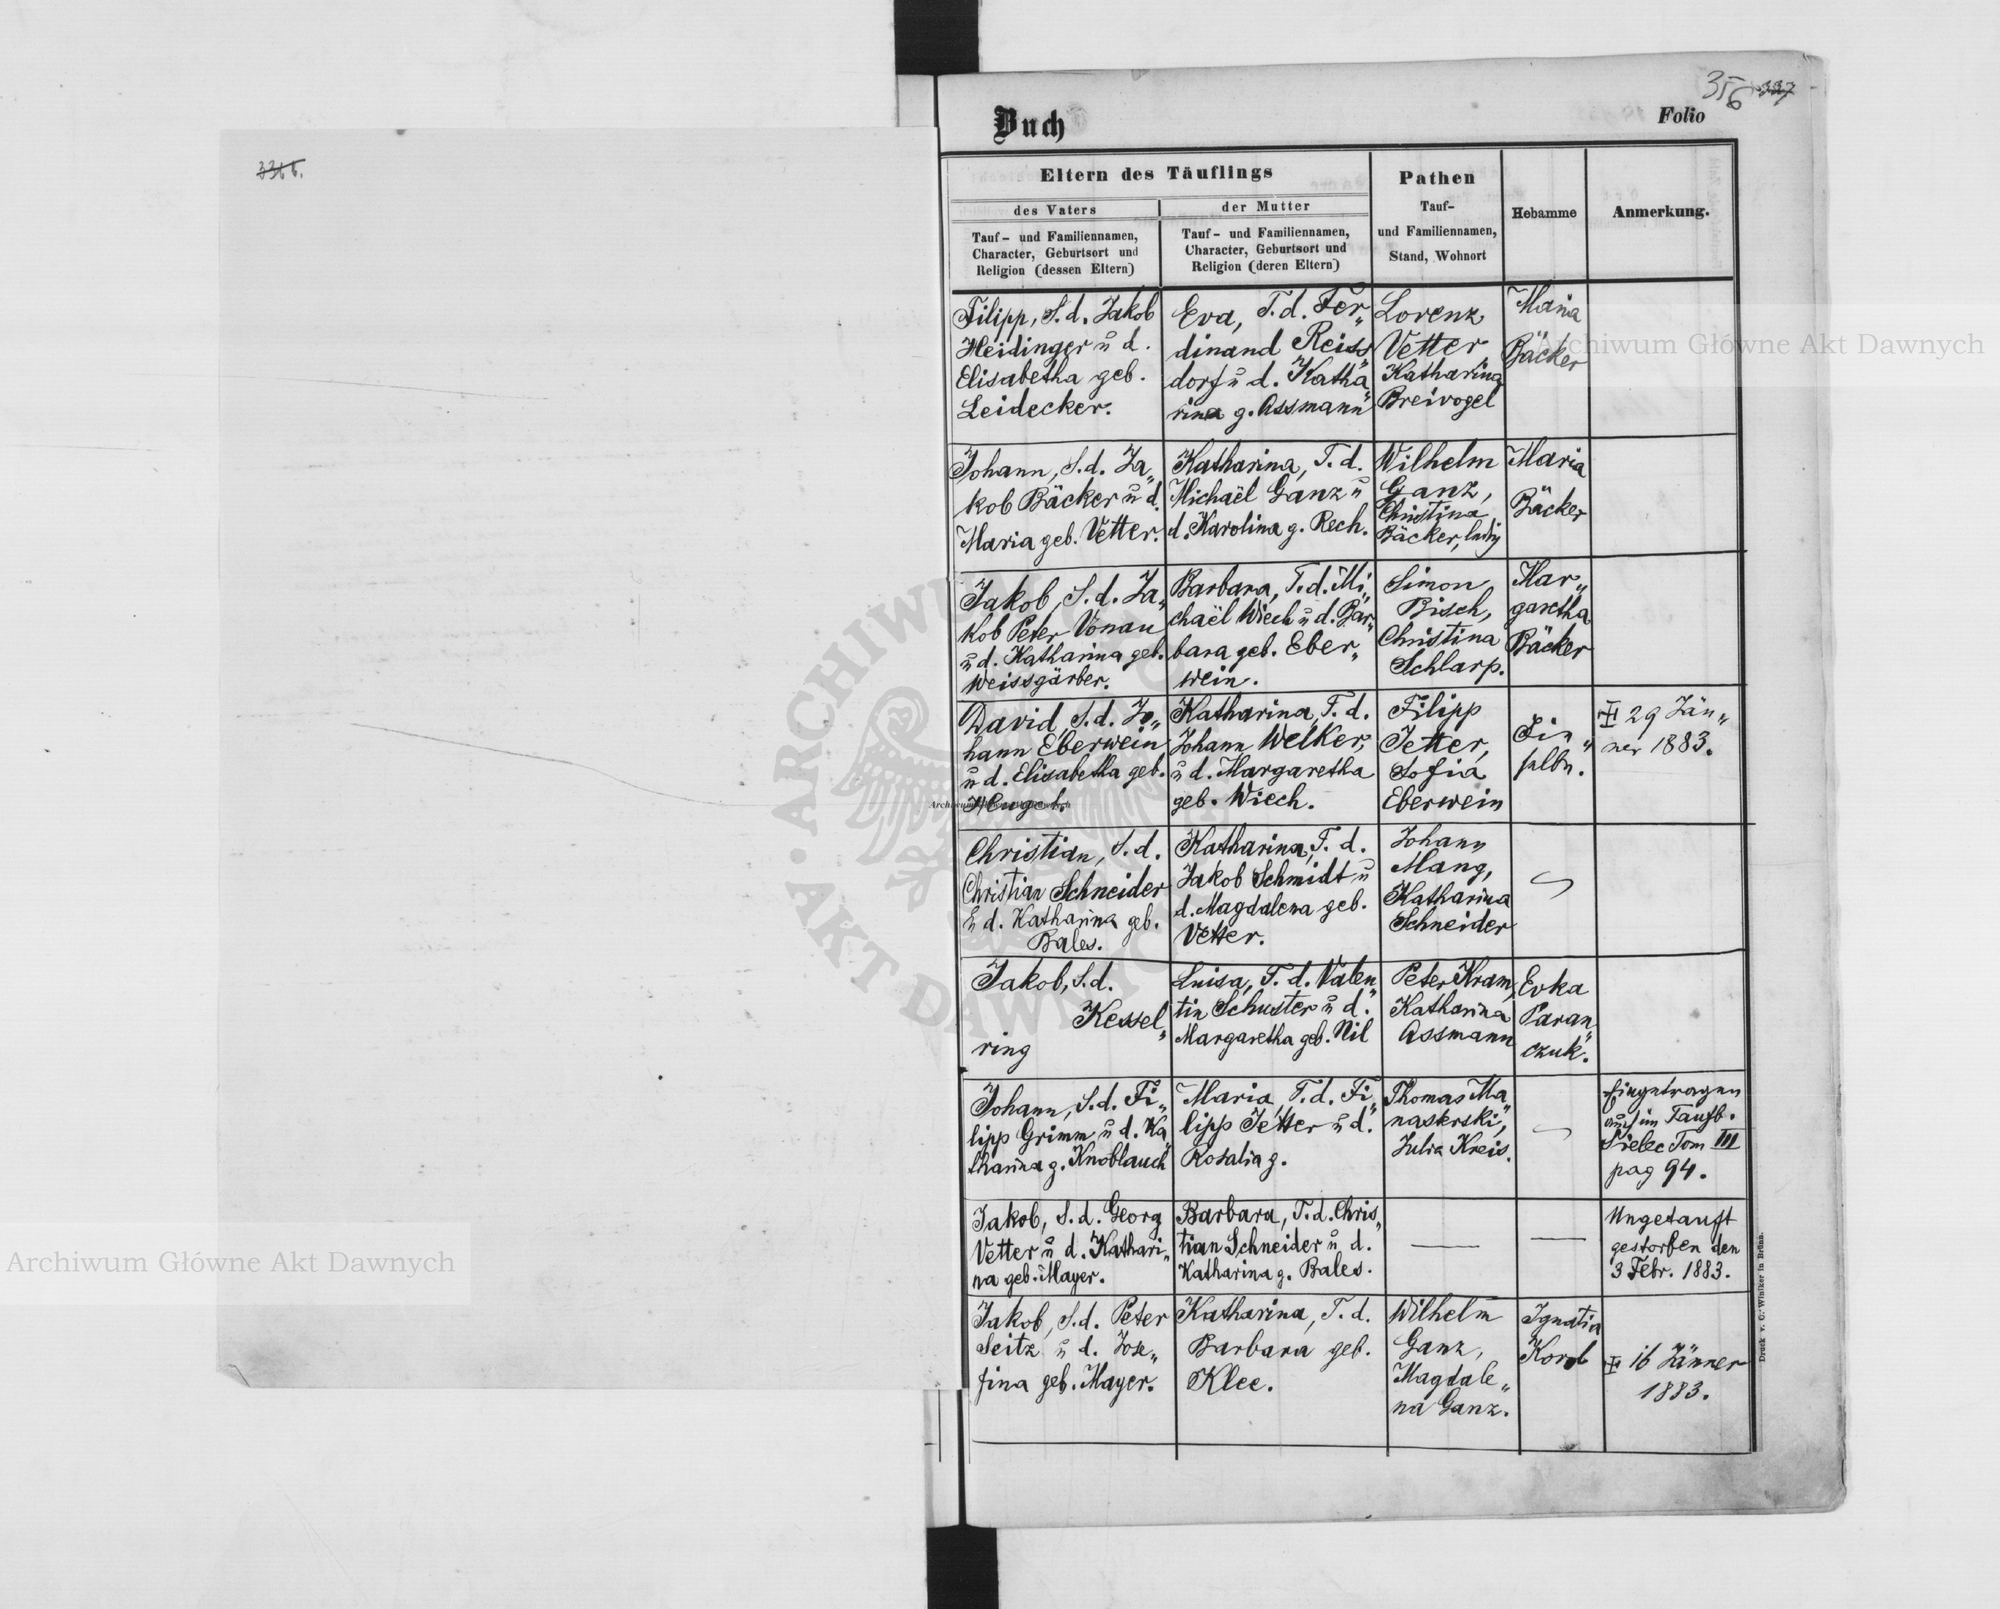 356 337
3366.
Buch
Folio
Eltern des Täuflings
Pathen
Tauf-
und Familiennamen,
Stand, Wohnort
Hebamme
Anmerkung.
des Vaters
der Mutter
Tauf- und Familiennamen,
Character, Geburtsort und
Religion (dessen Eltern)
Tauf- und Familiennamen,
Character, Geburtsort und
Religion (deren Eltern)
Filipp, S. d. Jakob
Heidinger u d.
Elisabetha geb.
Leidecker.
Eva, T. d. Fer„
dinand Reiss„
dorf u d. Katha„
rina g. Assmann
Lorenz
Vetter
Katharina
Breivogel
Maria
Bäcker
Johann, S. d. Ja„
kob Bäcker u d.
Maria geb. Vetter.
Katharina, T. d.
Michaël Ganz u
d. Karolina g. Rech.
Wilhelm
Ganz,
Christina
Bäcker, ledig
Maria
Bäcker
Jakob, S. d. Ja„
kob Peter Vonau
u d. Katharina geb.
Weissgärber.
Barbara, T. d. Mi„
chaël Wiech u d. Bar„
bara geb. Eber„
wein.
Simon
Bisch,
Christina
Schlarp.
Mar„
garetha
Bäcker
David, S. d. Jo„
hann Eberwein
u d. Elisabetha geb.
Heugel.
Katharina, T. d.
Johann Welker,
u d. Margaretha
geb. Wiech.
Filipp
Jetter,
Sofia
Eberwein
29 Jän„
ner 1883.
Christian, S. d.
Christian Schneider
u d. Katharina geb.
Bales.
Katharina, T. d.
Jakob Schmidt u
d. Magdalena geb.
Vetter.
Johann
Mang,
Katharina
Schneider
Jakob, S. d.
Kessel„
ring
Luisa, T. d. Valen„
tin Schuster u d.
Margaretha geb. Nil
Peter Kram,
Katharina
Assmann
Evka
Paran„
czuk.
Johann, S. d. Fi„
lipp Grimm u d. Ka„
tharina g. Knoblauch
Maria, T. d. Fi„
lipp Jetter u d.
Rosalia g.
Thomas Ma„
nasterski,
Julia Kreis.
Eingetragen
auch im Taufb.
Sielec Tom III
pag 94.
Jakob, S. d. Georg
Vetter u d. Kathari„
na geb. Mayer.
Barbara, T. d. Chris„
tian Schneider u d.
Katharina g. Bales.
Ungetauft
gestorben den
3 Febr. 1883.
Jakob, S. d. Peter
Seitz u d. Jose„
fina geb. Mayer.
Katharina, T. d.
Barbara geb.
Klee.
Wilhelm
Ganz,
Magdale„
na Ganz.
Ignatia
Korol
16 Jänner
1883.
Druck v. C. Winiker in Brünn.
Archiwum Główne Akt Dawnych
Archiwum Główne Akt Dawnych
Archiwum Główne Akt Dawnych
ARCHIWUM
AKT DAWNYCH